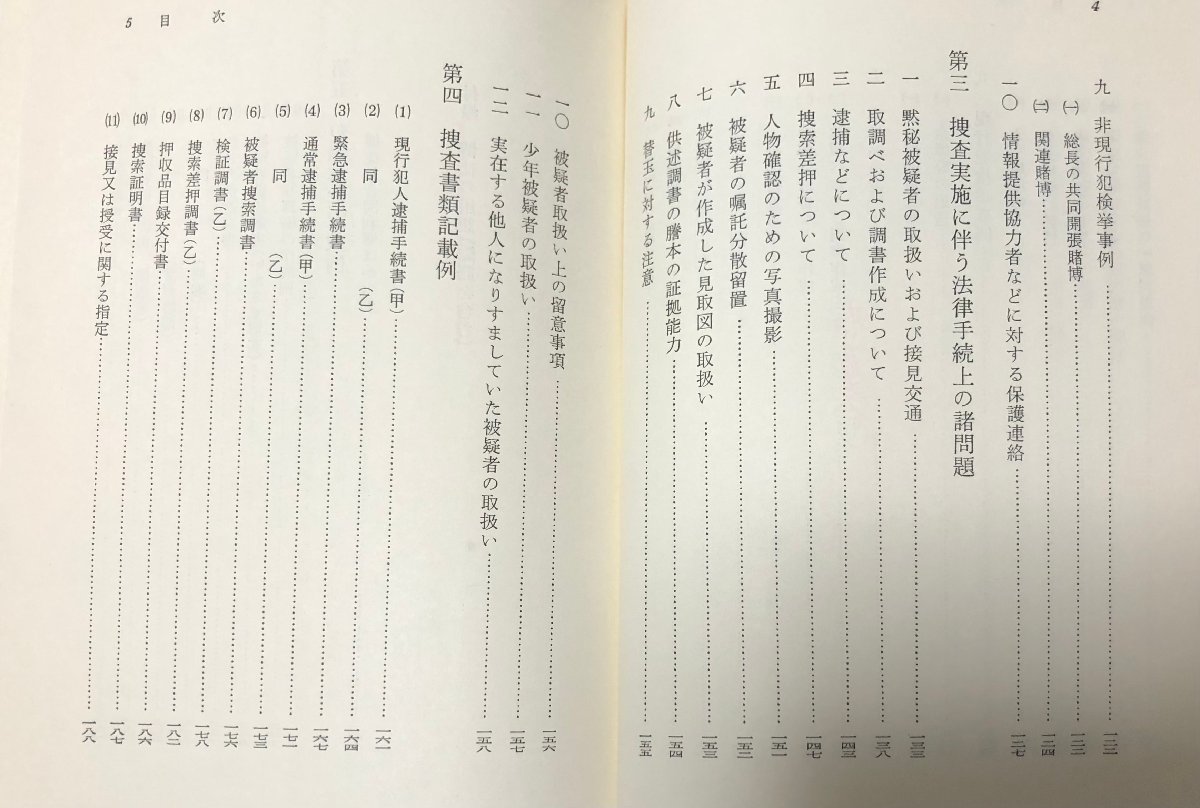 4
九 非現行犯検挙事例……一二二
㈠ 総長の共同開張賭博……一二二
㈡ 関連賭博……一二四
一〇 情報提供協力者などに対する保護連絡……一二七
第三 捜査実施に伴う法律手続上の諸問題
一 黙秘被疑者の取扱いおよび接見交通……一三三
二 取調べおよび調書作成について……一三八
三 逮捕などについて……一四三
四 捜索差押について……一四七
五 人物確認のための写真撮影……一五一
六 被疑者の嘱託分散留置……一五二
七 被疑者が作成した見取図の取扱い……一五三
八 供述調書の謄本の証拠能力……一五四
九 替玉に対する注意……一五五
5 目次
一〇 被疑者取扱い上の留意事項……一五六
一一 少年被疑者の取扱い……一五七
一二 実在する他人になりすましていた被疑者の取扱い……一五八
第四 捜査書類記載例
(1) 現行犯人逮捕手続書(甲)……一六一
(2) 同 (乙)……一六四
(3) 緊急逮捕手続書……一六七
(4) 通常逮捕手続書(甲)……一七一
(5) 同 (乙)……一七三
(6) 被疑者捜索調書……一七六
(7) 検証調書(乙)……一七八
(8) 捜索差押調書(乙)……一八二
(9) 押収品目録交付書……一八六
(10) 捜索証明書……一八七
(11) 接見又は授受に関する指定……一八八